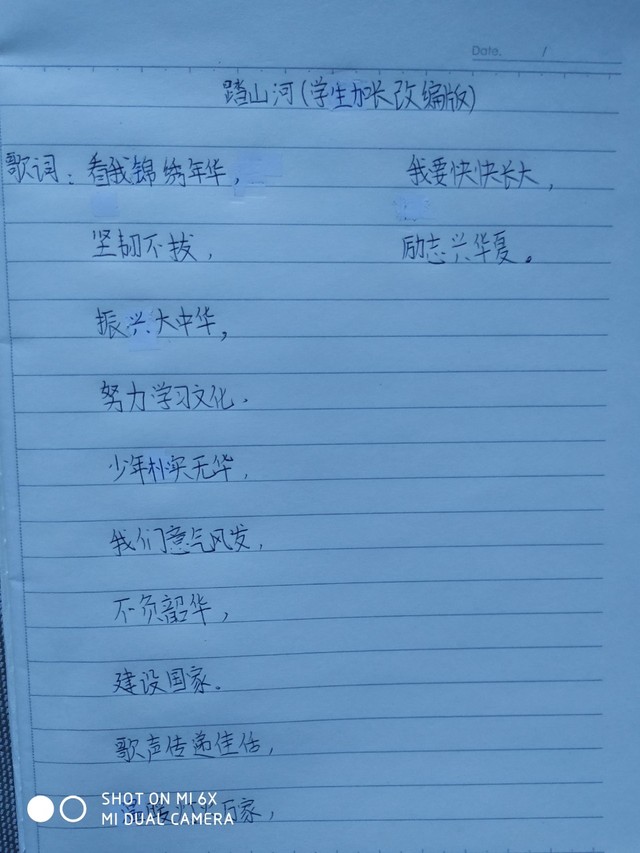 Date. /
踏山河(学生加长改编版)
歌词：看我锦绣年华，
坚韧不拔，
振兴大中华，
努力学习文化.
少年朴实无华，
我们意气风发，
不负韶华，
建设国家.
歌声传递佳话，
温暖灯火万家，
我要快快长大，
励志兴华夏。
SHOT ON MI 6X
MI DUAL CAMERA